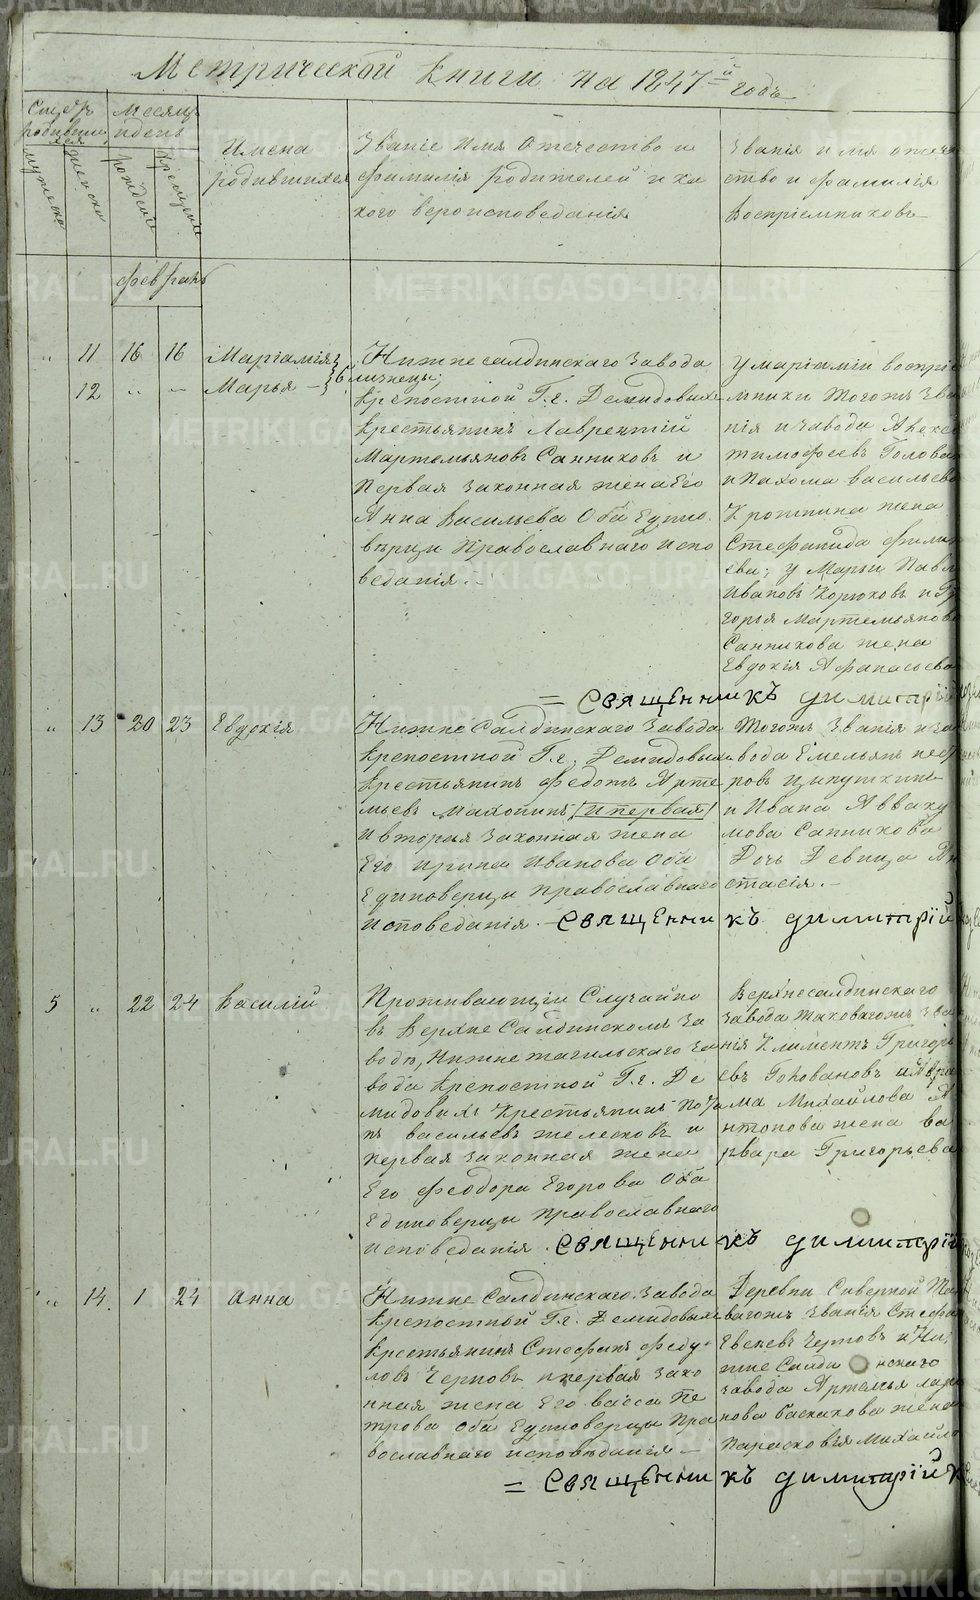 Метрической книги на 1847й годъ
Счетъ родившихся
мужеска
женска
Месяцъ и день
рожденія
крещенія
Имена родившихся
Званіе имя отечество и
фамилія родителей и ка
кого вероисповеданія
Званія имя отече
ство и фамилія
воспріемниковъ
февраль
" 11 16 16 Маріамія
12 " — Марья — близнецы;
Нижнесалдинскаго завода
крепостной Г.г. Демидовыхъ
крестьянинъ Лаврентій
Мартемьяновъ Санниковъ и
первая законная жена его
Анна Васильева оба едино
верцы Православнаго испо
веданія. -
У Маріаміи воспріе
мники тогожъ зва
нія и завода Алексе
тимофеевъ Голова
и Пахома Васильева
жена
Стефанида фили
ева; у Марьи Павл
Ивановъ и Гр
горья Мартемьянова
Санникова жена
Евдокія Афанасьева
= Священникъ Димитрій
" 13 20 23 Евдокія
Нижне Салдинскаго завода
крепостной Г.г. Демидовыхъ
крестьянинъ Федотъ Арте
мьевъ Махонинъ и первая
и вторья законная жена
его Ирина Иванова оба
единоверцы православнаго
исповеданія. Священникъ Димитрій
Тогожъ званія и за
вода Емельянъ пет
ровъ
и Ивана Авваку
мова Санникова
дочь девица Ан
стасія. -
5 " 22 24 Василій
Проживающій случайно
въ Верхне Салдинскомъ за
воде, Нижнетагильскаго за
вода крепостной Г.г. Де
мидовыхъ крестьянинъ
Васильевъ желесковъ и
первая законная жена
его Феодора Егорова оба
единоверцы православнаго
исповеданія. Священникъ Димитрій
Верхнесалдинскаго
завода таковагожъ зва
нія Климентъ Григорь
евъ Головановъ и Авра
ма Михайлова А
нтонова жена Ва
рвара Григорьева
" 14. 1 24 Анна
Нижне Салдинскаго завода
крепостной Г.г. Демидовыхъ
крестьянинъ Стефанъ Феду
ловъ Черновъ и первая зако
нная жена его Васса Пе
трова оба единоверцы пра
вославнаго исповеданія —
Деревни Северной та
вагожъ званія Стефа
Евсеевъ Черновъ и Ни
жне Салди нскаго
завода Артемья лари
нова Баскакова жена
Парасковія Михайло
= Священникъ Димитрій
METRIKI.GASO-URAL.RU